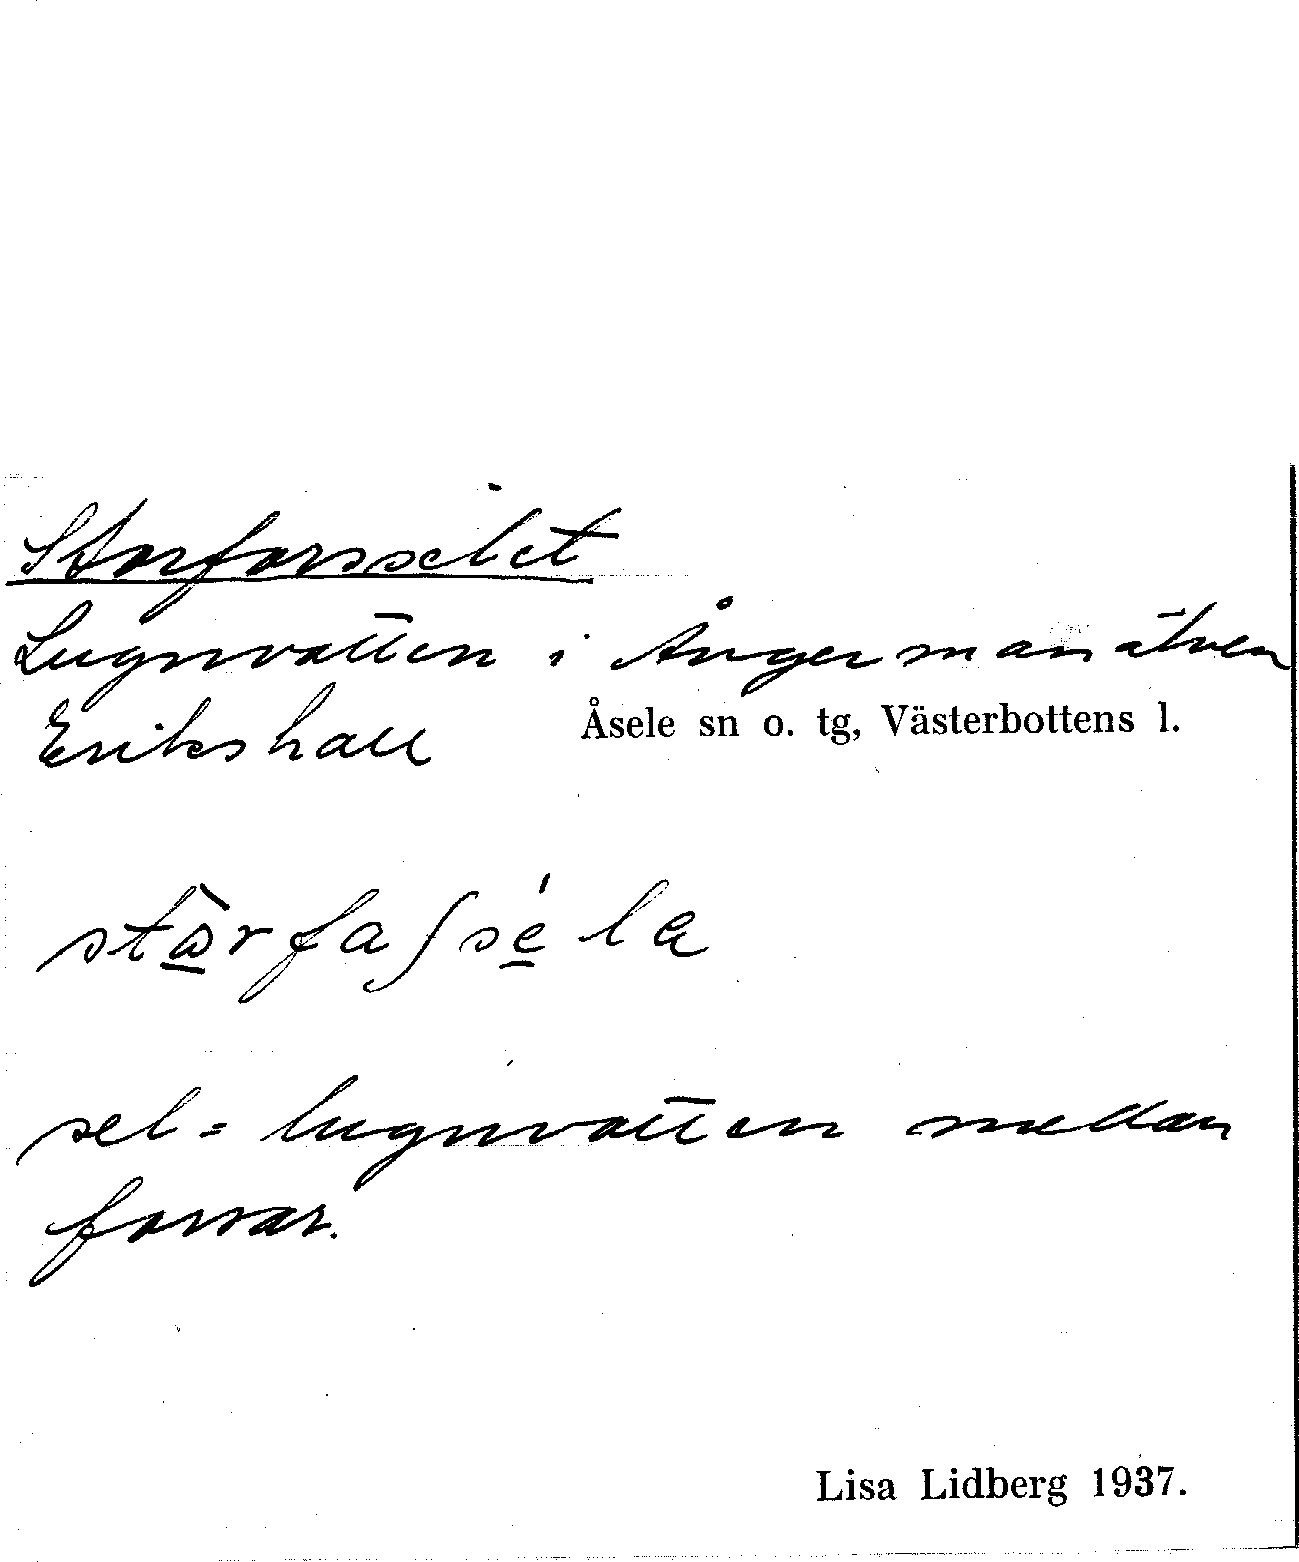 Storforsselet
Lugnvatten i Ångermanälven
Erikshall Åsele sn o. tg, Västerbottens l.
sel = lugnvatten mellan
forsar.
Lisa Lidberg 1937.